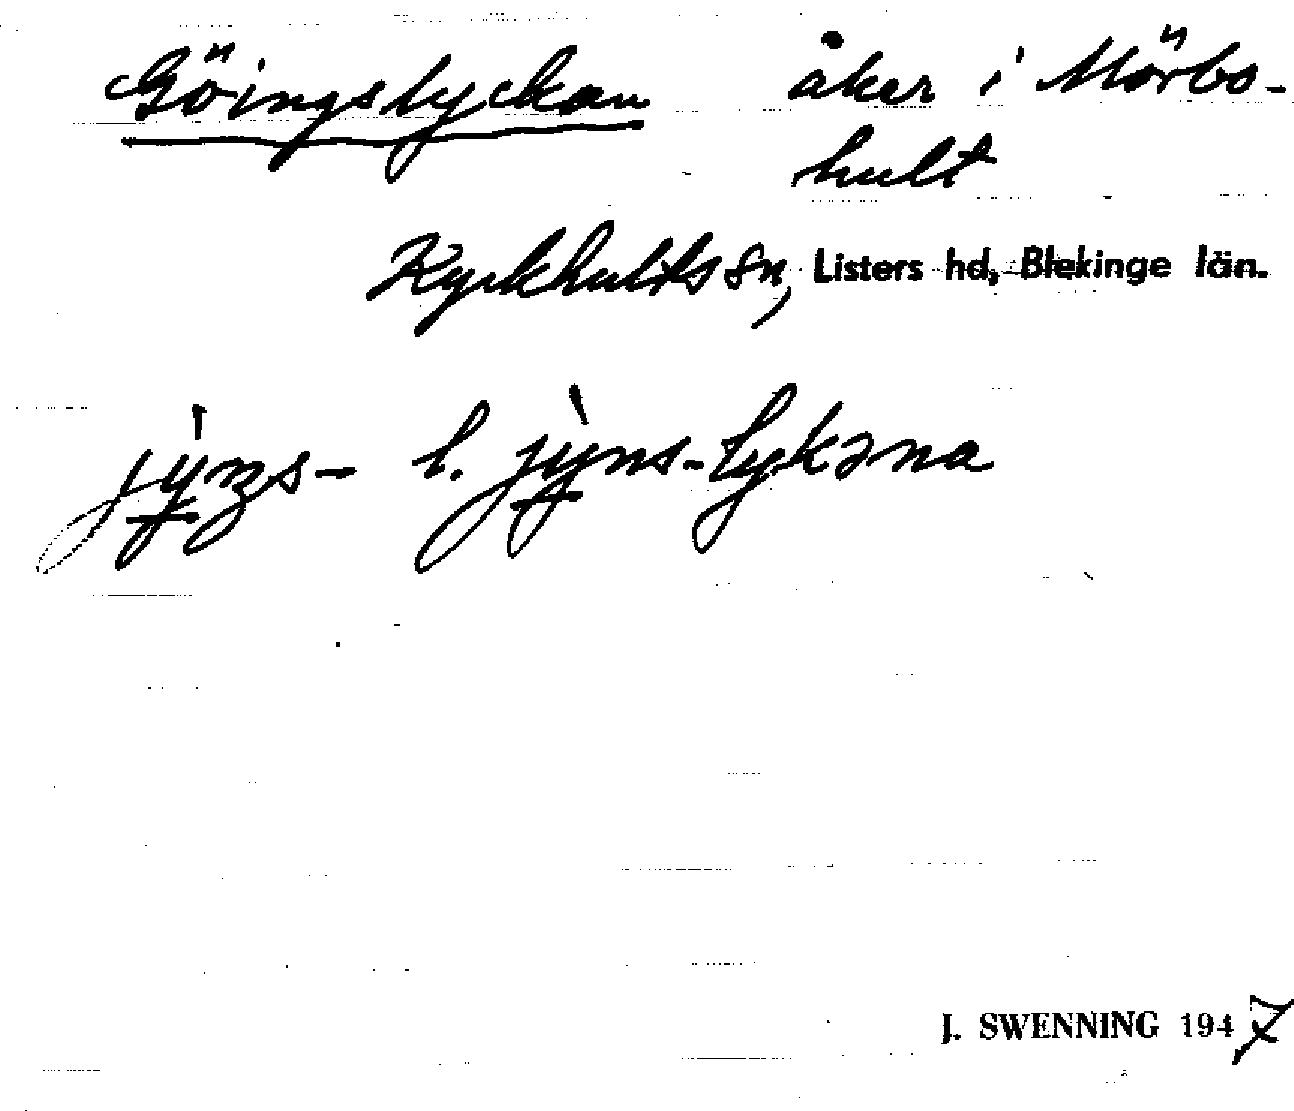 Göingslyckan åker i Mörbo-
hult
Kyrkhults sn, Listers hd, Blekinge län.
jy̵ŋs- l. jy̵ns-lykəna
J. SWENNING 1947